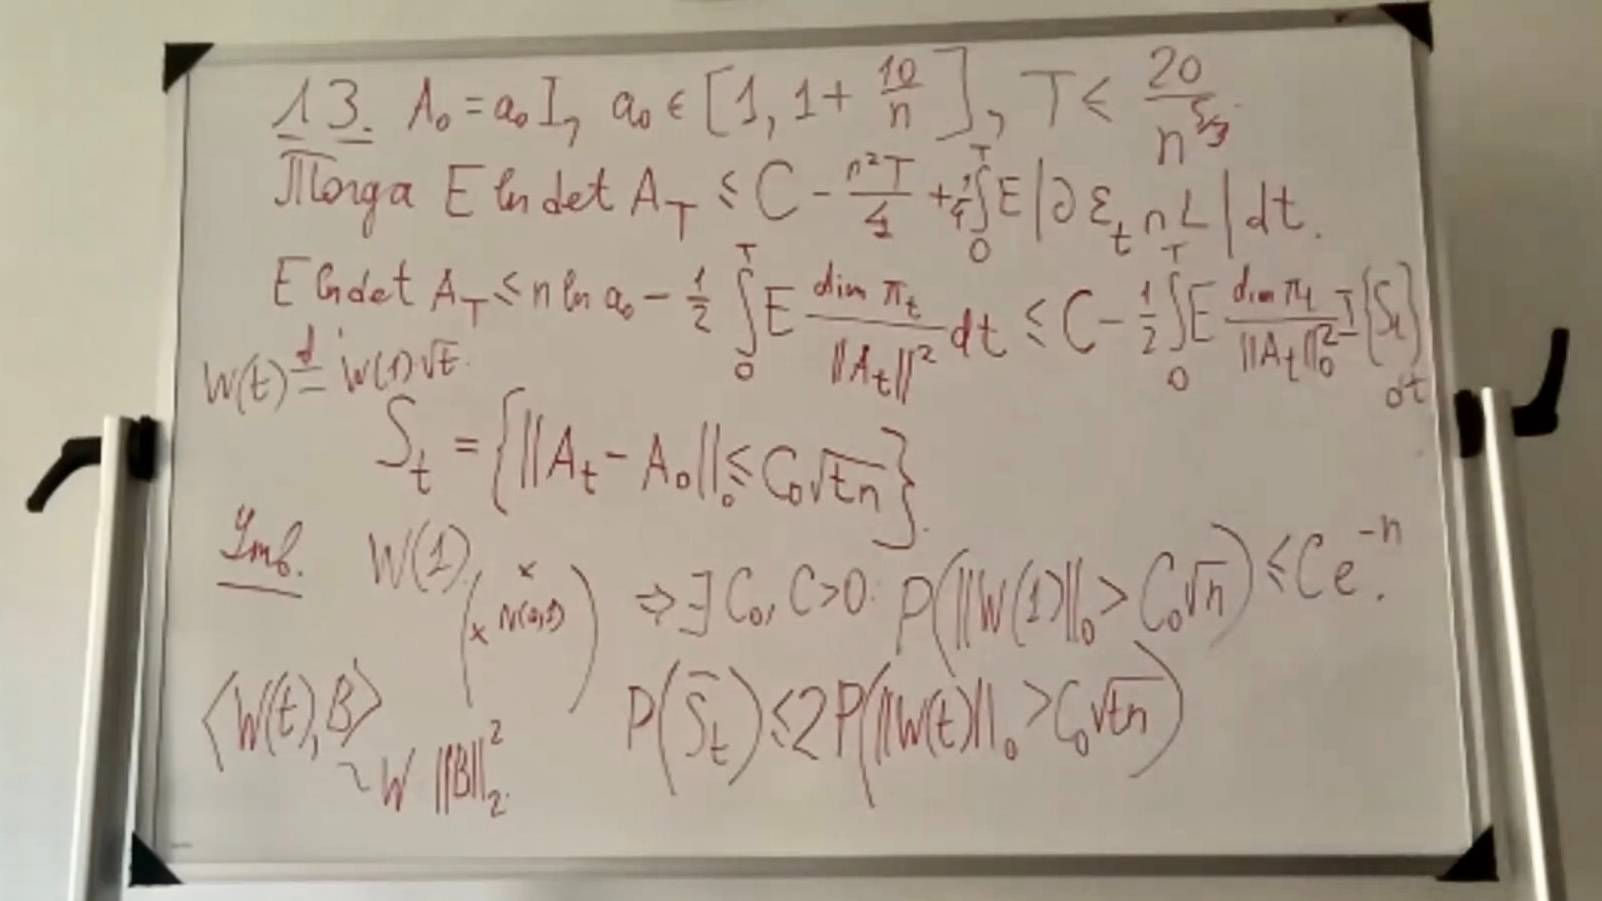 13. A₀ = a₀I, a₀ ∈ [1, 1 + 10/n], T ≤ 20/n^{5/3}.
Тогда E ln det A_T ≤ C - n²T/4 + 1/4 ∫₀ᵀ E |∂ε_t ∩ L| dt.
E ln det A_T ≤ n ln a₀ - 1/2 ∫₀ᵀ E dim π_t/||A_t||² dt ≤ C - 1/2 ∫₀ᵀ E dim π_t/||A_t||₀² I{S_t} dt
W(t) =^d W(1)√t.
S_t = {||A_t - A₀||₀ ≤ C₀√tn}.
Утв. W(1) (× N(0,1) ×) ⇒ ∃ C₀, C > 0: P(||W(1)||₀ > C₀√n) ≤ Ce^{-n}.
⟨W(t), B⟩ ~ W ||B||₂².
P(S̄_t) ≤ 2P(||W(t)||₀ > C₀√tn)